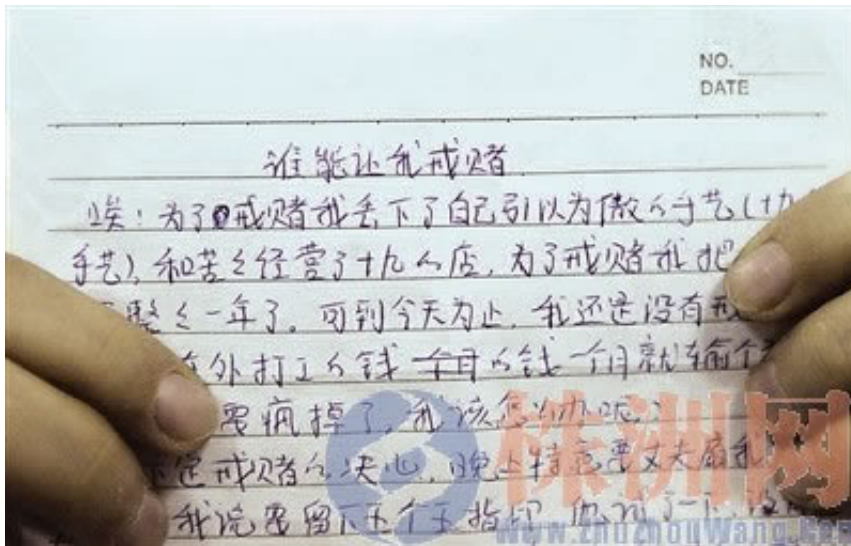 NO.
DATE
谁能让我戒赌
唉！为了戒赌我丢下了自己引以为傲的手艺（十九
手艺），和苦々经营了十九的店，为了戒赌我把
整々一年了。可到今天为止，我还是没有戒
外打工的钱 的钱一个月就输个
要疯掉了，我该怎么办呢？
定戒赌的决心，晚上特意要丈夫扇我
我说要留下五个手指印，他
株洲网
www.zhuzhouwang.com